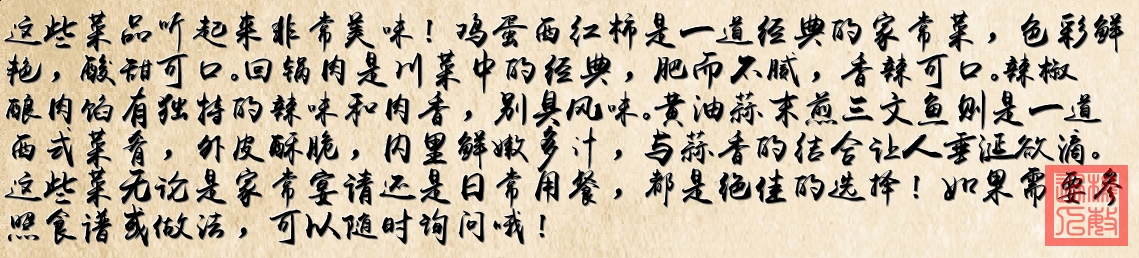 这些菜品听起来非常美味！鸡蛋西红柿是一道经典的家常菜，色彩鲜
艳，酸甜可口。回锅肉是川菜中的经典，肥而不腻，香辣可口。辣椒
酿肉馅有独特的辣味和肉香，别具风味。黄油蒜末煎三文鱼则是一道
西式菜肴，外皮酥脆，内里鲜嫩多汁，与蒜香的结合让人垂涎欲滴。
这些菜无论是家常宴请还是日常用餐，都是绝佳的选择！如果需要参
照食谱或做法，可以随时询问哦！